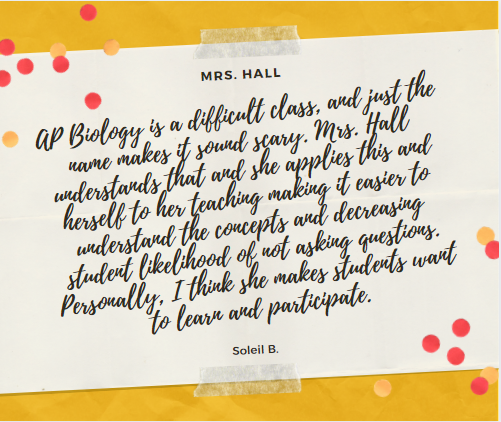 MRS. HALL
AP Biology is a difficult class, and just the
name makes it sound scary. Mrs. Hall
understands that and she applies this and
herself to her teaching making it easier to
understand the concepts and decreasing
student likelihood of not asking questions.
Personally, I think she makes students want
to learn and participate.
Soleil B.